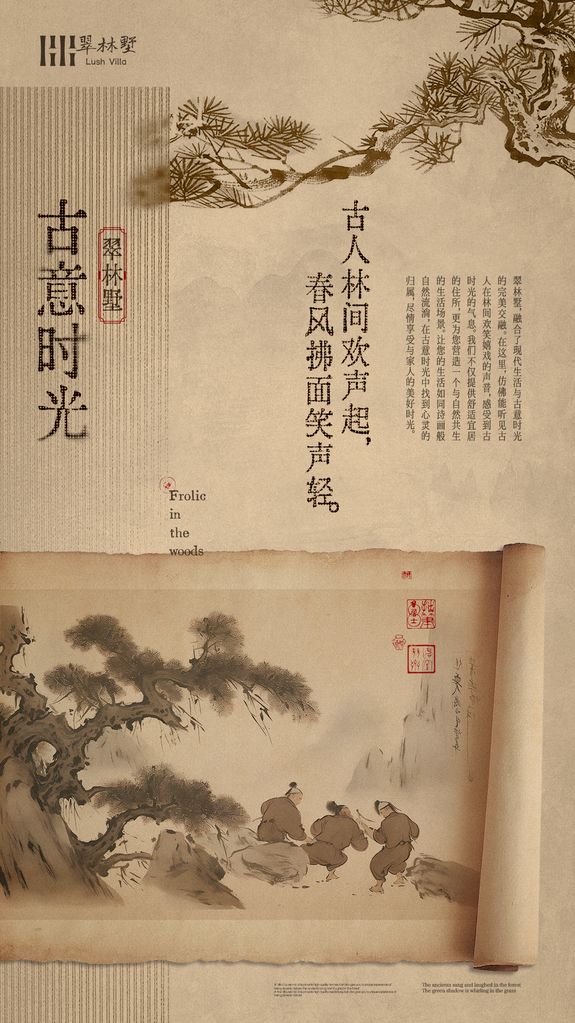 翠林墅
Lush Villa
古意时光
翠林墅
古人林间欢声起，
春风拂面笑声轻。
翠林墅，融合了现代生活与古意时光
的完美交融。在这里，仿佛能听见古
人在林间欢笑嬉戏的声音，感受到古
时光的气息。我们不仅提供舒适宜居
的住所，更为您营造一个与自然共生
的生活场景。让您的生活如同诗画般
自然流淌，在古意时光中找到心灵的
归属，尽情享受与家人的美好时光。
Frolic
in
the
woods
The ancients sang and laughed in the forest
The green shadow is whirling in the grass